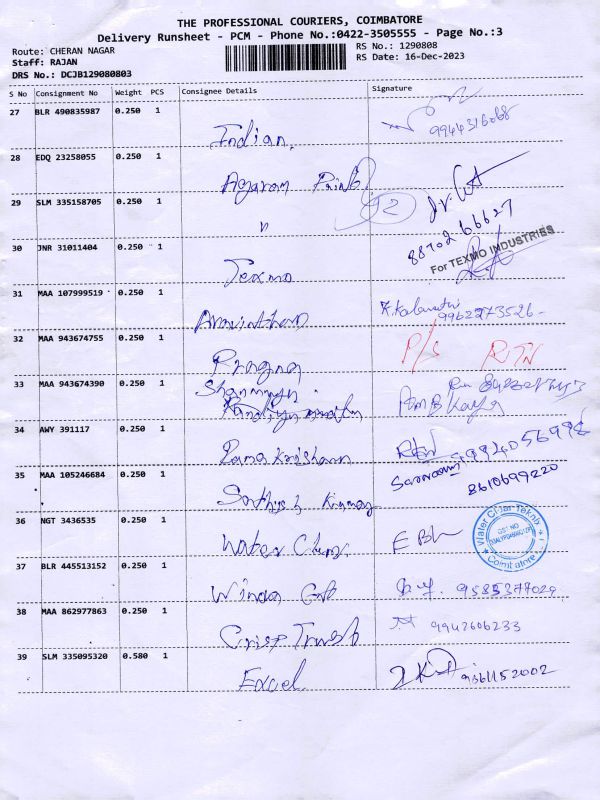 THE PROFESSIONAL COURIERS, COIMBATORE
Delivery Runsheet - PCM - Phone No.:0422-3505555 - Page No.:3
Route: CHERAN NAGAR
RS No.: 1290808
Staff: RAJAN
RS Date: 16-Dec-2023
DRS No.: DCJB129080803
S No Consignment No Weight PCS Consignee Details Signature
27 BLR 490835987 0.250 1
Indian, 9944316068
28 EDQ 23258055 0.250 1
Agaram
29 SLM 335158705 0.250 1
"
92
8870266627
30 JNR 31011404 0.250 1
For TEXMO INDUSTRIES
Texmo
31 MAA 107999519 0.250 1
Aravinthan 9962273526
32 MAA 943674755 0.250 1
P/S RTN
Pragna
33 MAA 943674390 0.250 1
34 AWY 391117 0.250 1
Rama Krishnan 9994056998
35 MAA 105246684 0.250 1
Sathish Kumar 8610699220
36 NGT 3436535 0.250 1
Water Chem
Water Chem Teknik
GST NO
Coimbatore
37 BLR 445513152 0.250 1
9585377029
38 MAA 862977863 0.250 1
Crisp Trust 9942606233
39 SLM 335095320 0.580 1
Excel 9361152002